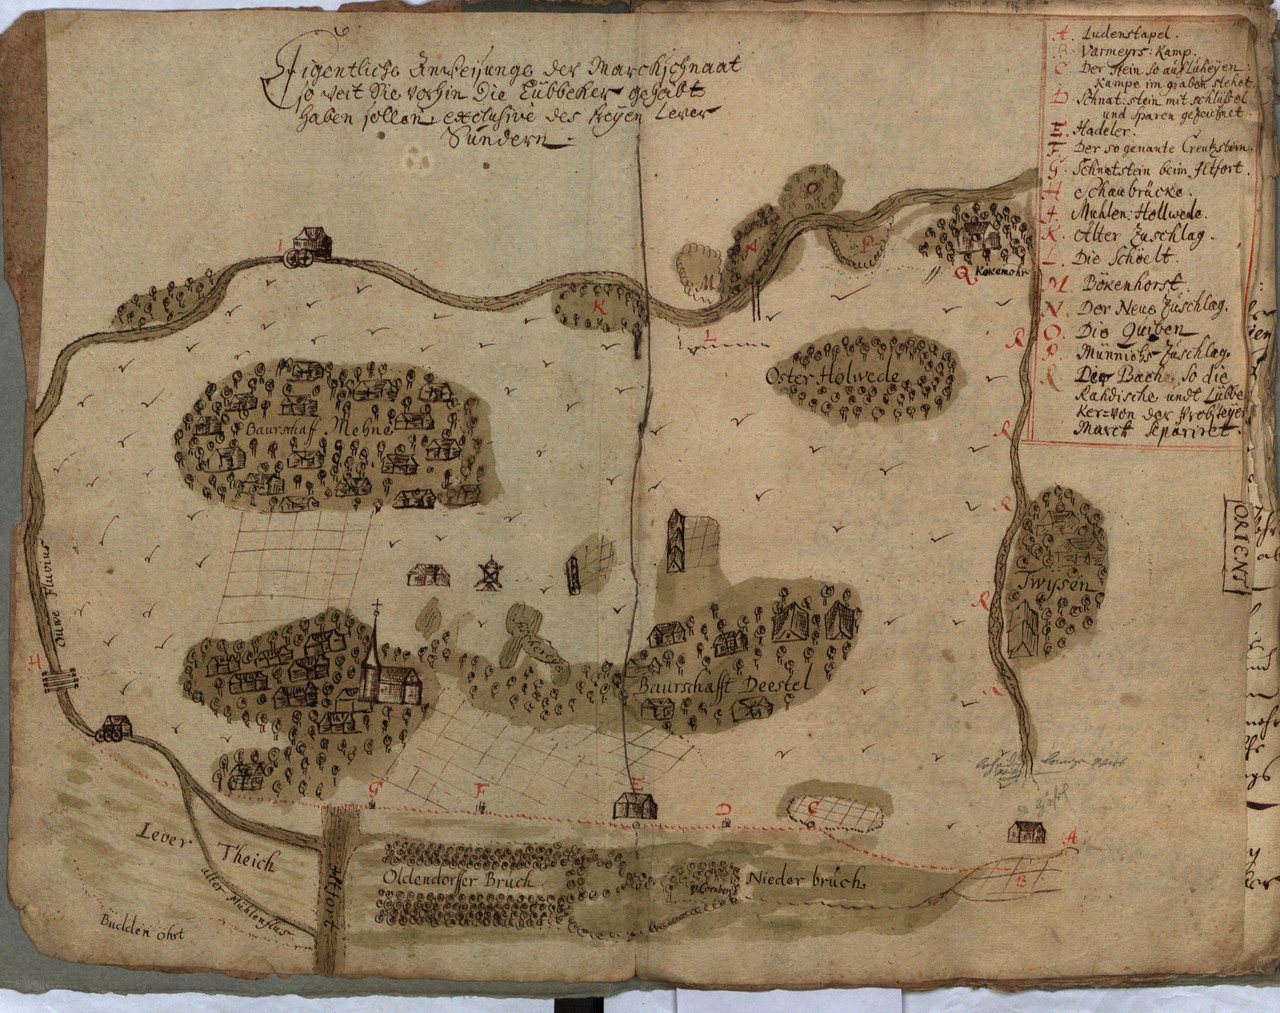 Eigentliche Anweisunge der Marckschnaat
so weit Sie vorhin die Lübbeker gehabt
haben sollen exclusive des Reyen Lever
Sundern.
A. Ludenstapel.
B. Varmeyrs: Kamp.
C. Der stein so auf Luheyen:
Kampe im graben stehet
D. Schnat: stein mit schlüßel
und sparen gezeichnet
E. Hadeler.
F. Der so genante Creutzstein.
G. Schnatstein beim Iltfort.
H. Schaubrücke.
I. Mühlen: Hollwede.
K. Alter Zuschlag.
L. Die Schöelt.
M. Bökenhorst.
N. Der Neue Zuschlag.
O. Die Quiben
P. Munnichs Zuschlag.
R. Die Bach so die
Rahdische undt Lübbe
Ker von der
Marck separiret.
O
I
N
P
M
Q Kokemohr
K
L
R
Oster Holwede
Baurschaf Mehne
R
R
ORIENT
Ouwe Fluvius
Twysen
R
H
Baurschafft Deestel
R
G
F
E
D
C
A
Lever Theich
Oldendorffer Bruch
Nieder bruch
B
alter Mühlenflus
Budden ohrt